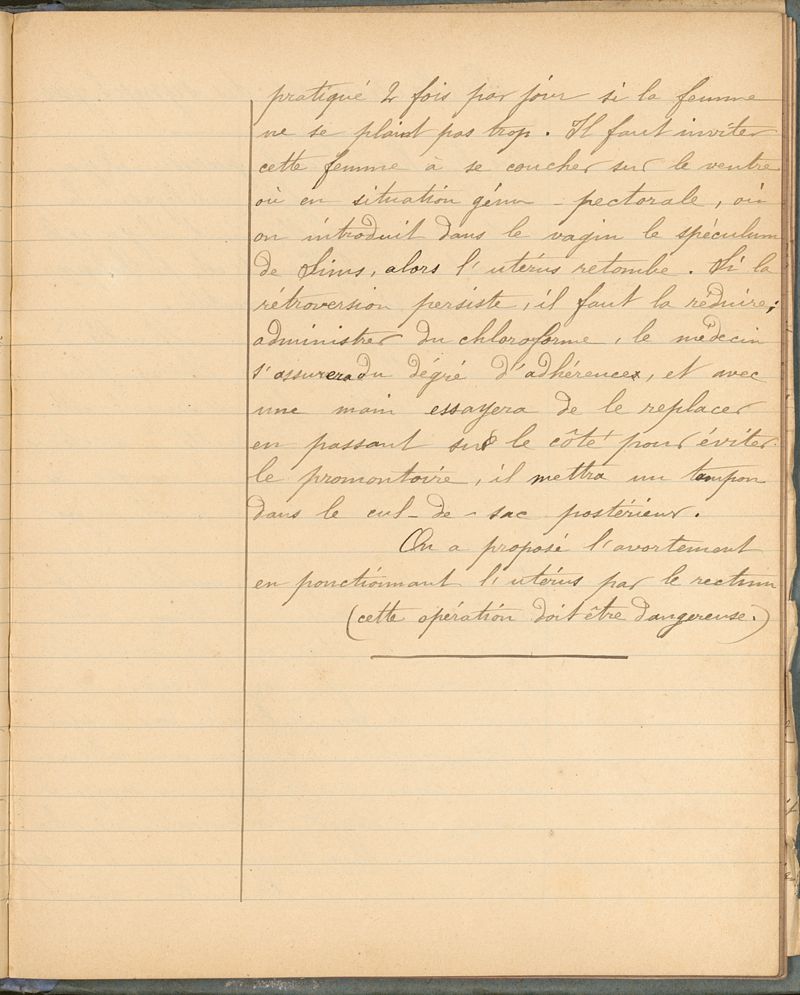 pratiqué 2 fois par jour si la femme
ne se plaint pas trop. Il faut inviter
cette femme à se coucher sur le ventre
où en situation génu-pectorale, où
on introduit dans le vagin le spéculum
de Sims, alors l'utérus retombe. Si la
rétroversion persiste, il faut la réduire;
administrer du chloroforme, le médecin
s'assurera du dégré d'adhérences, et avec
une main essayera de le replacer
en passant sur le côté pour éviter
le promontoire, il mettra un tampon
dans le cul-de-sac postérieur.
On a proposé l'avortement
en ponctionnant l'utérus par le rectum
(cette opération doit être dangereuse.)